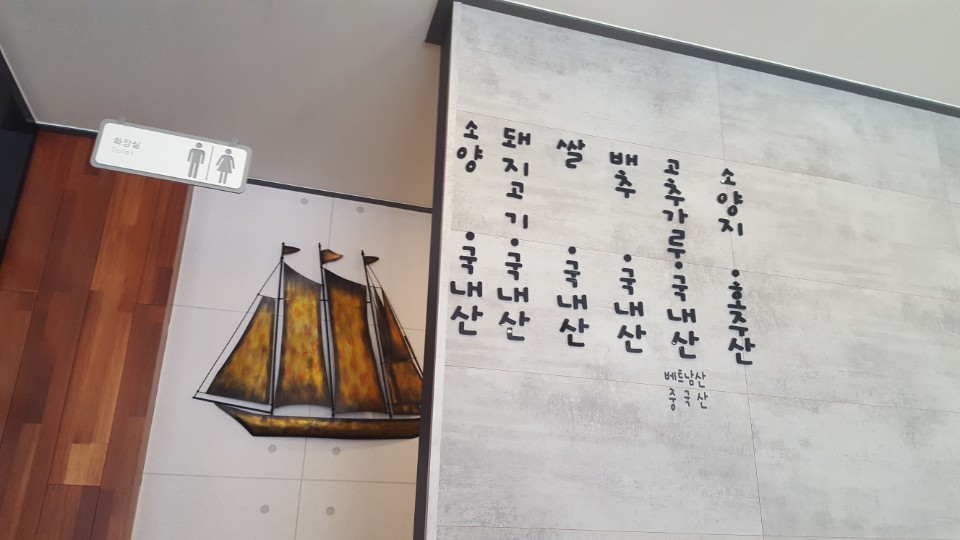 화장실
Toilet
소양·국내산
돼지고기·국내산
쌀·국내산
배추·국내산
고추가루·국내산
베트남산
중국산
소양지·호주산